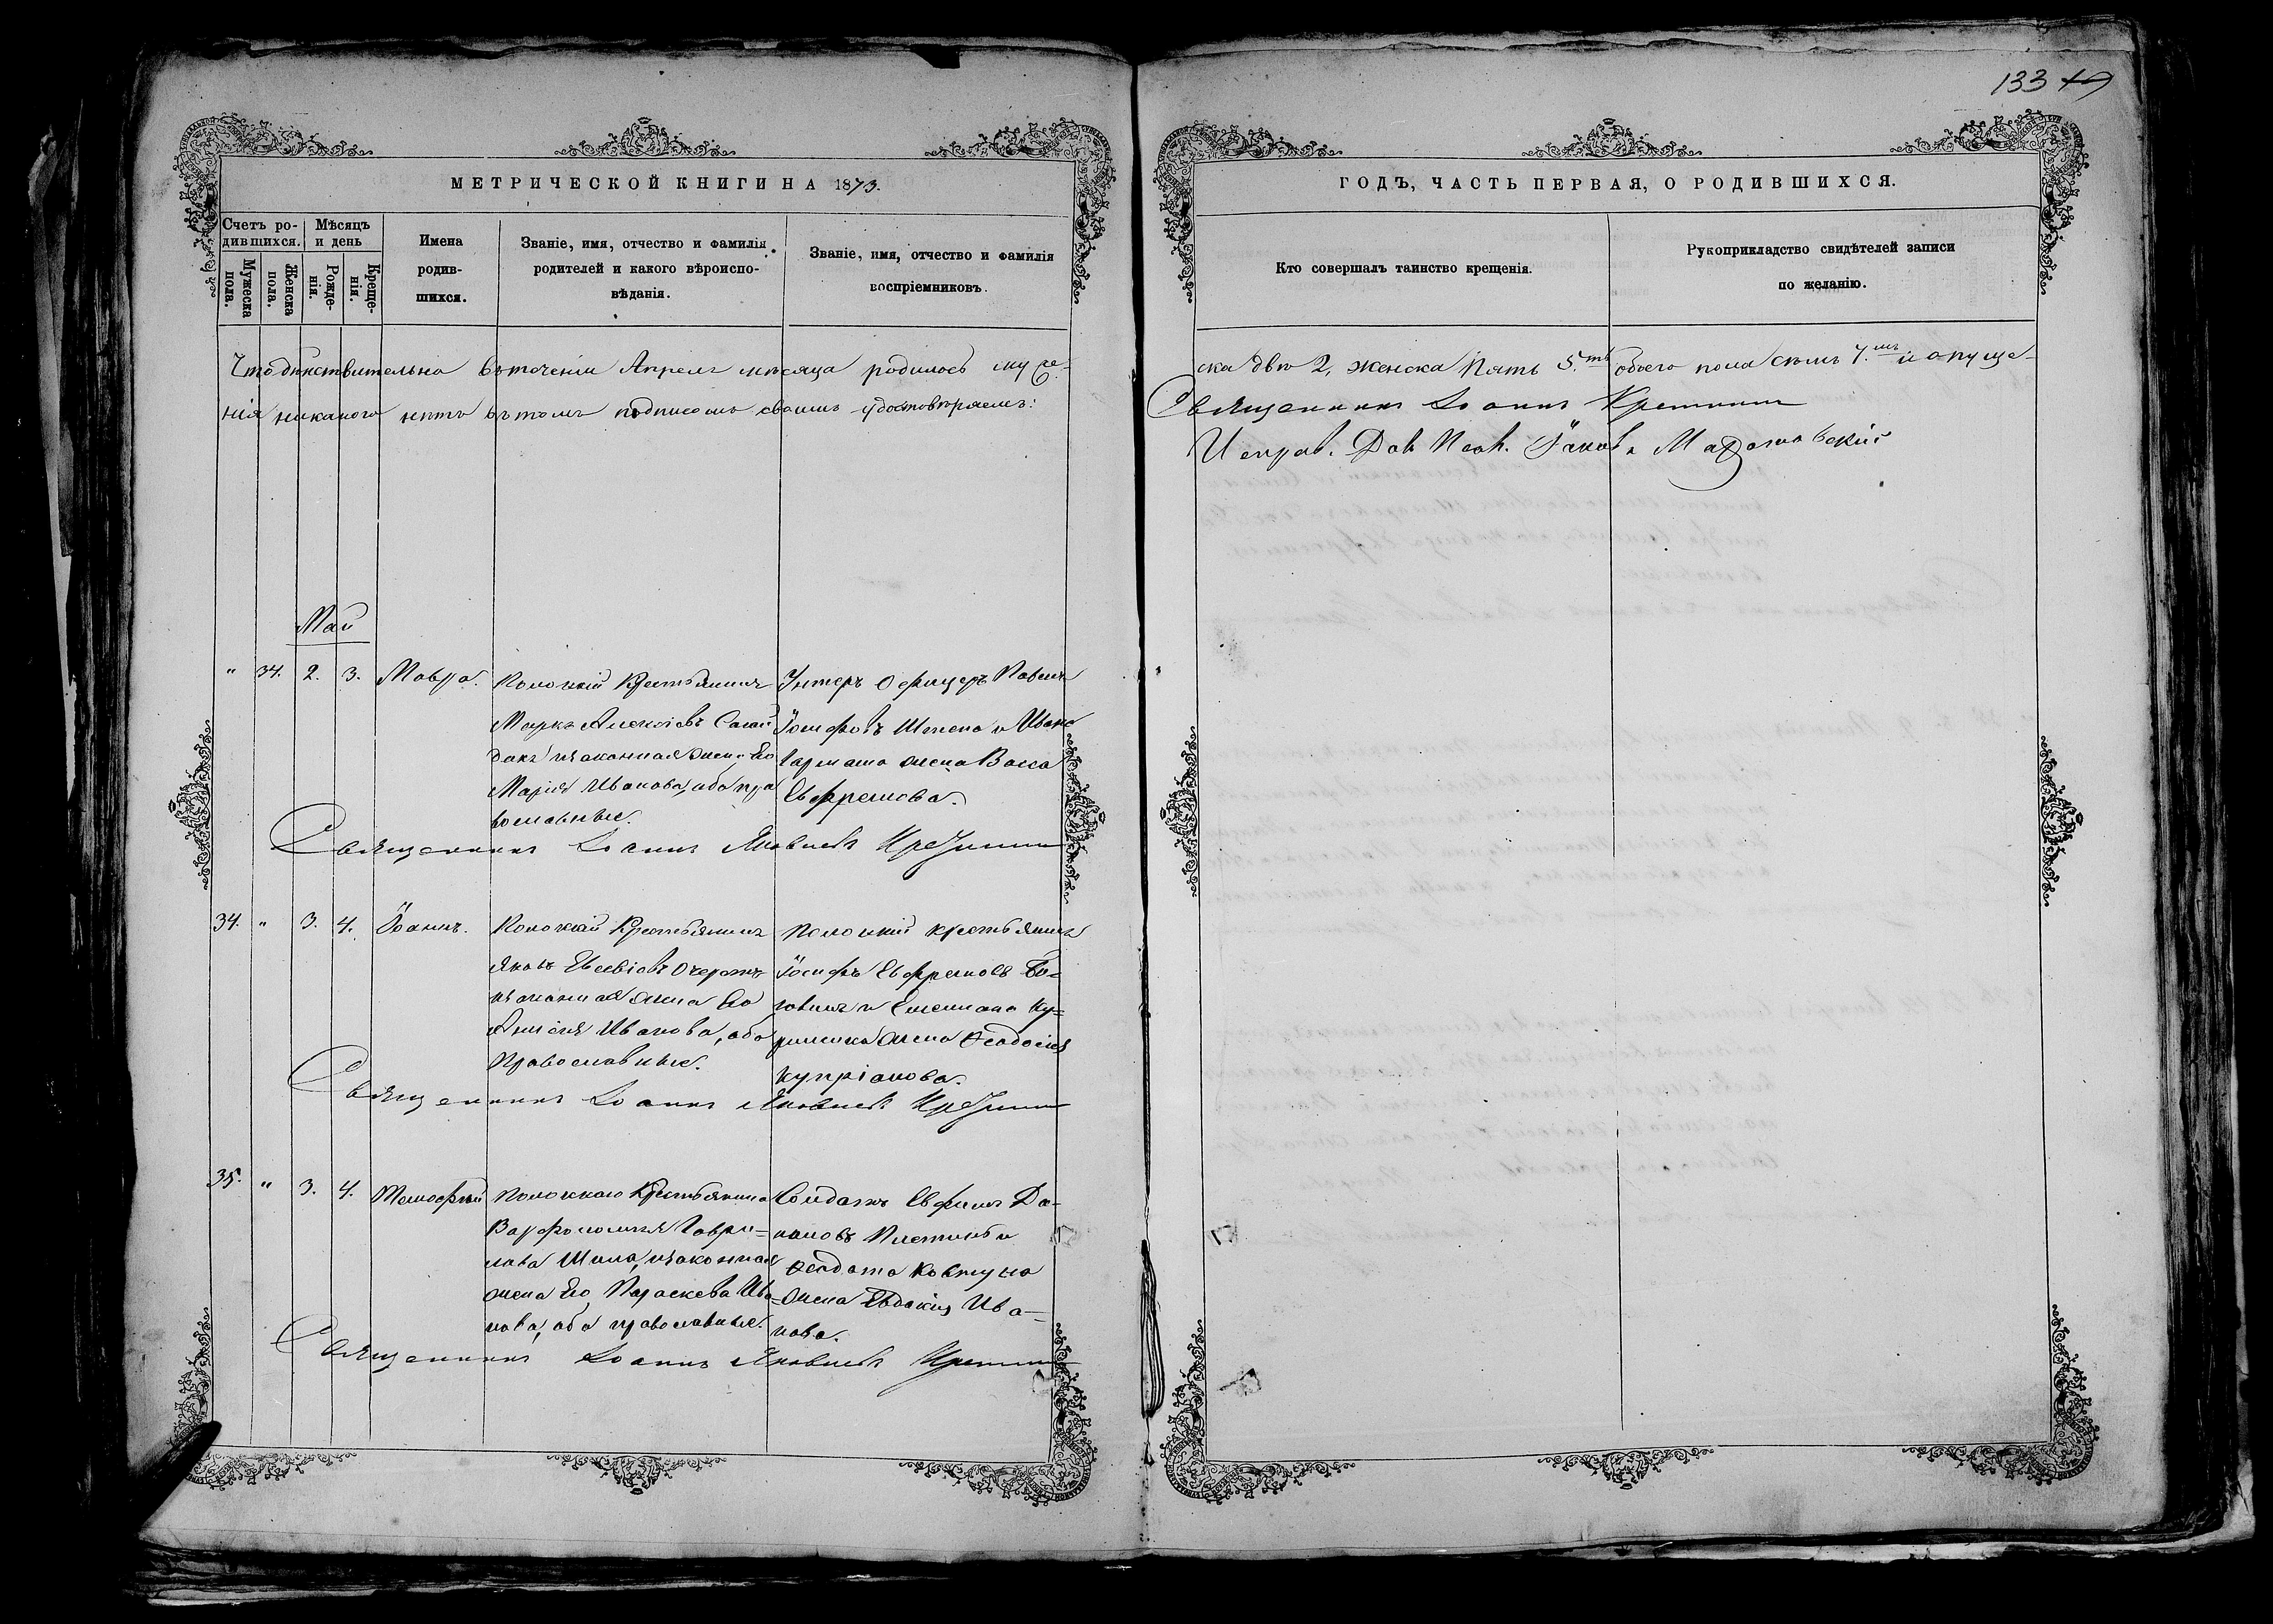 133 19
МЕТРИЧЕСКОЙ КНИГИ НА 1873.
ГОДЪ, ЧАСТЬ ПЕРВАЯ, О РОДИВШИХСЯ.
Счетъ ро-
дившихся.
Мужеска
пола.
Женска
пола.
Мѣсяцъ
и день
Рожде-
нія.
Креще-
нія.
Имена
родив-
шихся.
Званіе, имя, отчество и фамилія
родителей и какого вѣроиспо-
вѣданія.
Званіе, имя, отчество и фамилія
воспріемниковъ.
Кто совершалъ таинство крещенія.
Рукоприкладство свидѣтелей записи
по желанію.
Что дѣйствительно въ теченіи Апрель мѣсяца родилось муже-
ска два 2, женска пять 5.ть обоего пола семь 7.мь и опуще-
нія никакого нетъ въ томъ подписомъ своимъ удостовѣряемъ:
Священникъ Іоаннъ
Исправ. Дол. Псал. Іаковъ
Май
" 34. 2. 3. Мавра.
Крестьянинъ
Марко Алексіевъ Сагай
дакъ изаконная жена Его
Марія Иванова, оба пра
вославные.
Унтеръ Офицеръ Павелъ
Іосифовъ Шепета и Ивана
жена Васса
Евфремова.
Священникъ Іоаннъ Яковлевъ
34. " 3. 4. Іоаннъ.
Крестьянинъ
Яковъ Евсевіевъ
изаконная жена Его
Анисія Иванова, оба
Православные.
крестьянинъ
Іосифъ Евфремовъ Бо-
и Емелиана Ку-
жена Феодосія
Купріанова.
Священникъ Іоаннъ Яковлевъ
35. " 3. 4. Тимофѣй
Крестьянина
Варфоломея Гаври-
лова Шила, изаконная
жена Его Параскева Ива-
нова, оба православные.
Солдатъ Евфимъ Да-
и
Феодота Ковтуна
жена Евдокія Ива-
нова.
Священникъ Іоаннъ Яковлевъ